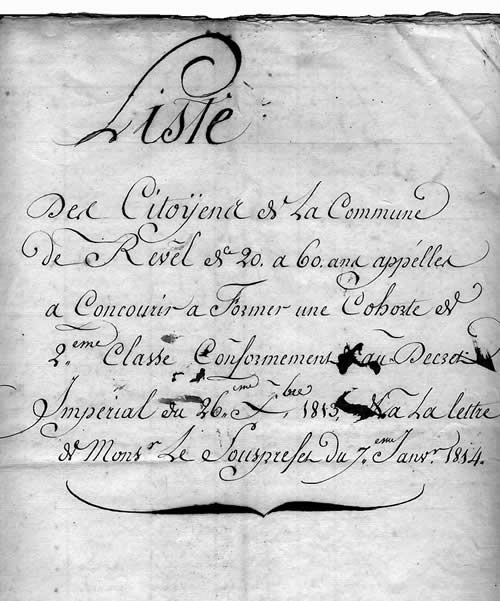 Liste
Des Citoÿens de La Commune
de Revel de 20. a 60. ans appéllés
a Concourir a Former une Cohorte de
2.eme Classe Conformement au Decret
Imperial du 26.eme X.bre 1813, & a La lettre
de Mons.r Le Sousprefet du 7.eme Janv.r 1814.